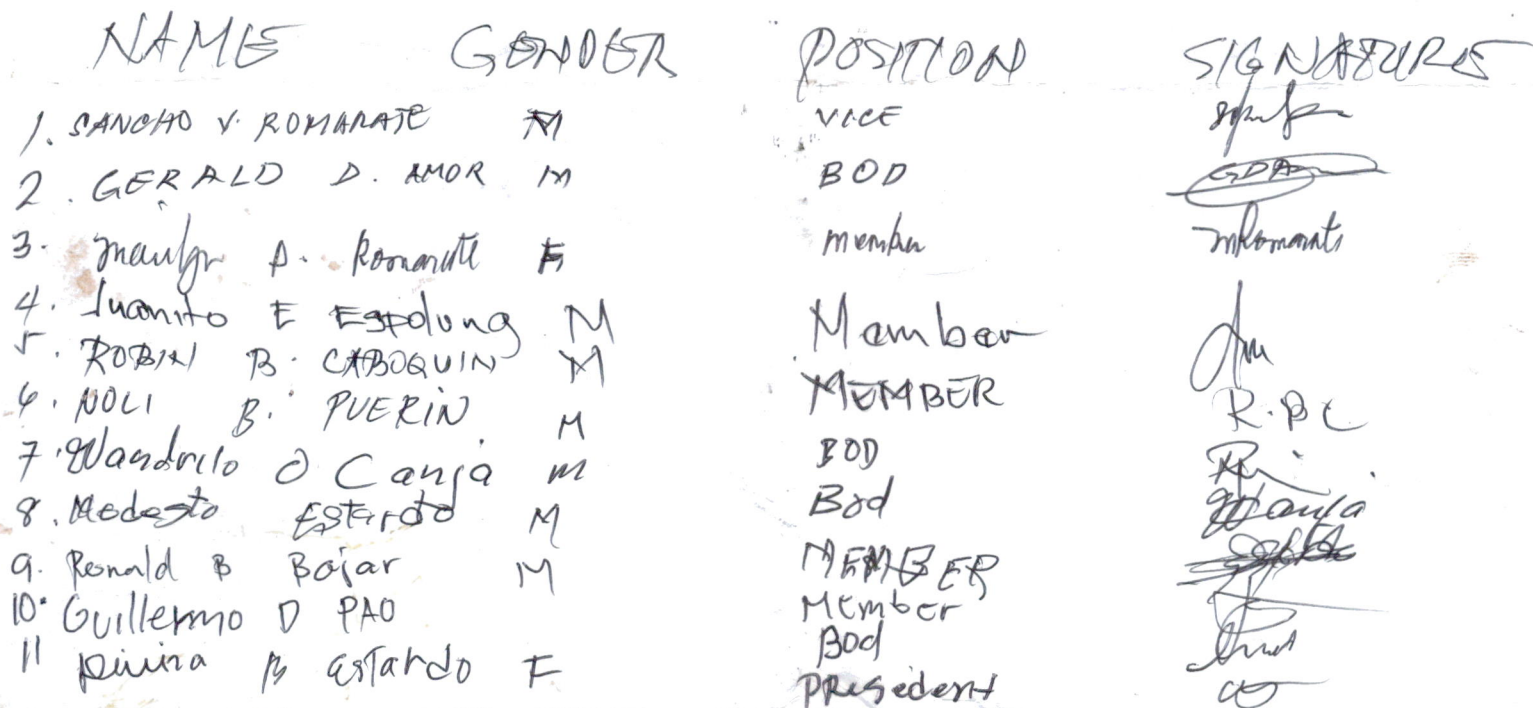 NAME GENDER POSITION SIGNATURE
1. SANCHO V. ROMARATE M VICE
2. GERALD D. AMOR M BOD GDA
3. A. Romarate F member mRomarate
4. Juanito E Espolong M Member
5. ROBIN B. CABOQUIN M MEMBER R.BC
6. NOLI B. PUERIN M BOD
7. Wandrilo O Canja m Bod Canja
8. Modesto Estardo M MEMBER
9. Ronald B Bojar M Member
10. Guillermo D PAO Bod
11 Divina B Estardo F PResedent